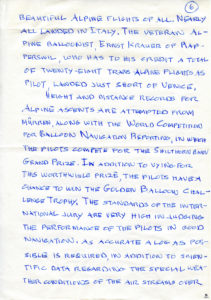 6
BEAUTIFUL ALPINE FLIGHTS OF ALL. NEARLY
ALL LANDED IN ITALY. THE VETERAN AL-
PINE BALLOONIST ERNST KRAUER OF RAP-
PERSWIL, WHO HAS TO HIS CREDIT A TOTAL
OF TWENTY-EIGHT TRANS ALPINE FLIGHTS AS
PILOT, LANDED JUST SHORT OF VENICE.
HEIGHT AND DISTANCE RECORDS FOR
ALPINE ASCENTS ARE ATTEMPTED FROM
MÜRREN, ALONG WITH THE WORLD COMPETITION
FOR BALLOON NAVIGATION REPORTING, IN WHICH
THE PILOTS COMPETE FOR THE SHILTHORN BAHN
GRAND PRIZE. IN ADDITION TO VYING FOR
THIS WORTHWHILE PRIZE, THE PILOTS HAVE A
CHANCE TO WIN THE GOLDEN BALLOON CHAL-
LENGE TROPHY. THE STANDARDS OF THE INTER-
NATIONAL JURY ARE VERY HIGH IN JUDGING
THE PERFORMANCE OF THE PILOTS IN GOOD
NAVIGATION. AS ACCURATE A LOG AS POS-
SIBLE IS REQUIRED, IN ADDITION TO SCIEN-
TIFIC DATA REGARDING THE SPECIAL WEA-
THER CONDITIONS OF THE AIR STREAMS OVER